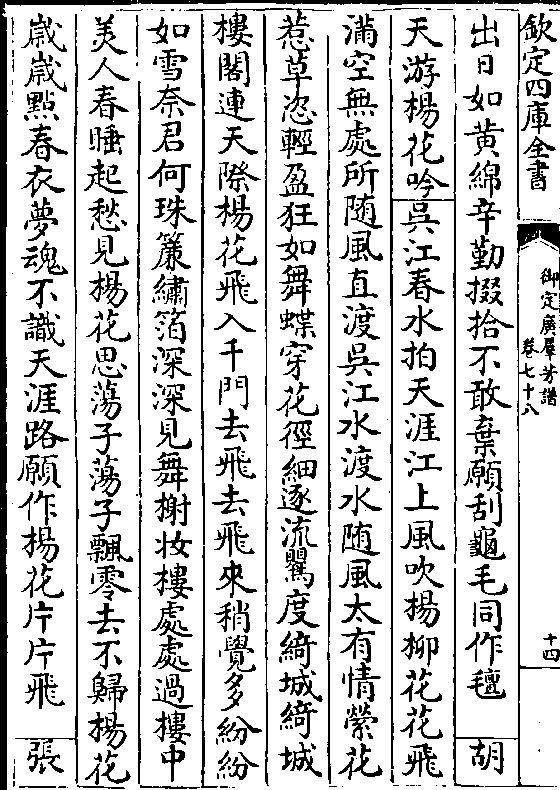 欽定四庫全書
御定廣羣芳譜
卷七十八
十四
出日如黄綿辛勤掇拾不敢棄願刮龜毛同作氊 胡
天游楊花吟吳江春水拍天涯江上風吹楊柳花花飛
滿空無處所随風直渡吳江水渡水随風太有情縈花
惹草恣輕盈狂如舞蝶穿花徑細逐流鶯度綺城綺城
樓閣連天際楊花飛入千門去飛去飛來稍覺多紛紛
如雪奈君何珠簾繡箔深深見舞榭妝樓處處過樓中
美人春睡起愁見楊花思蕩子蕩子飄零去不歸楊花
歳歳點春衣夢魂不識天涯路願作楊花片片飛 張